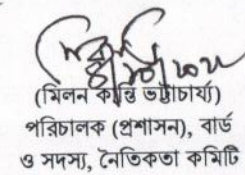 (মিলন কান্তি ভট্টাচার্য্য)
পরিচালক (প্রশাসন), বার্ড
ও সদস্য, নৈতিকতা কমিটি